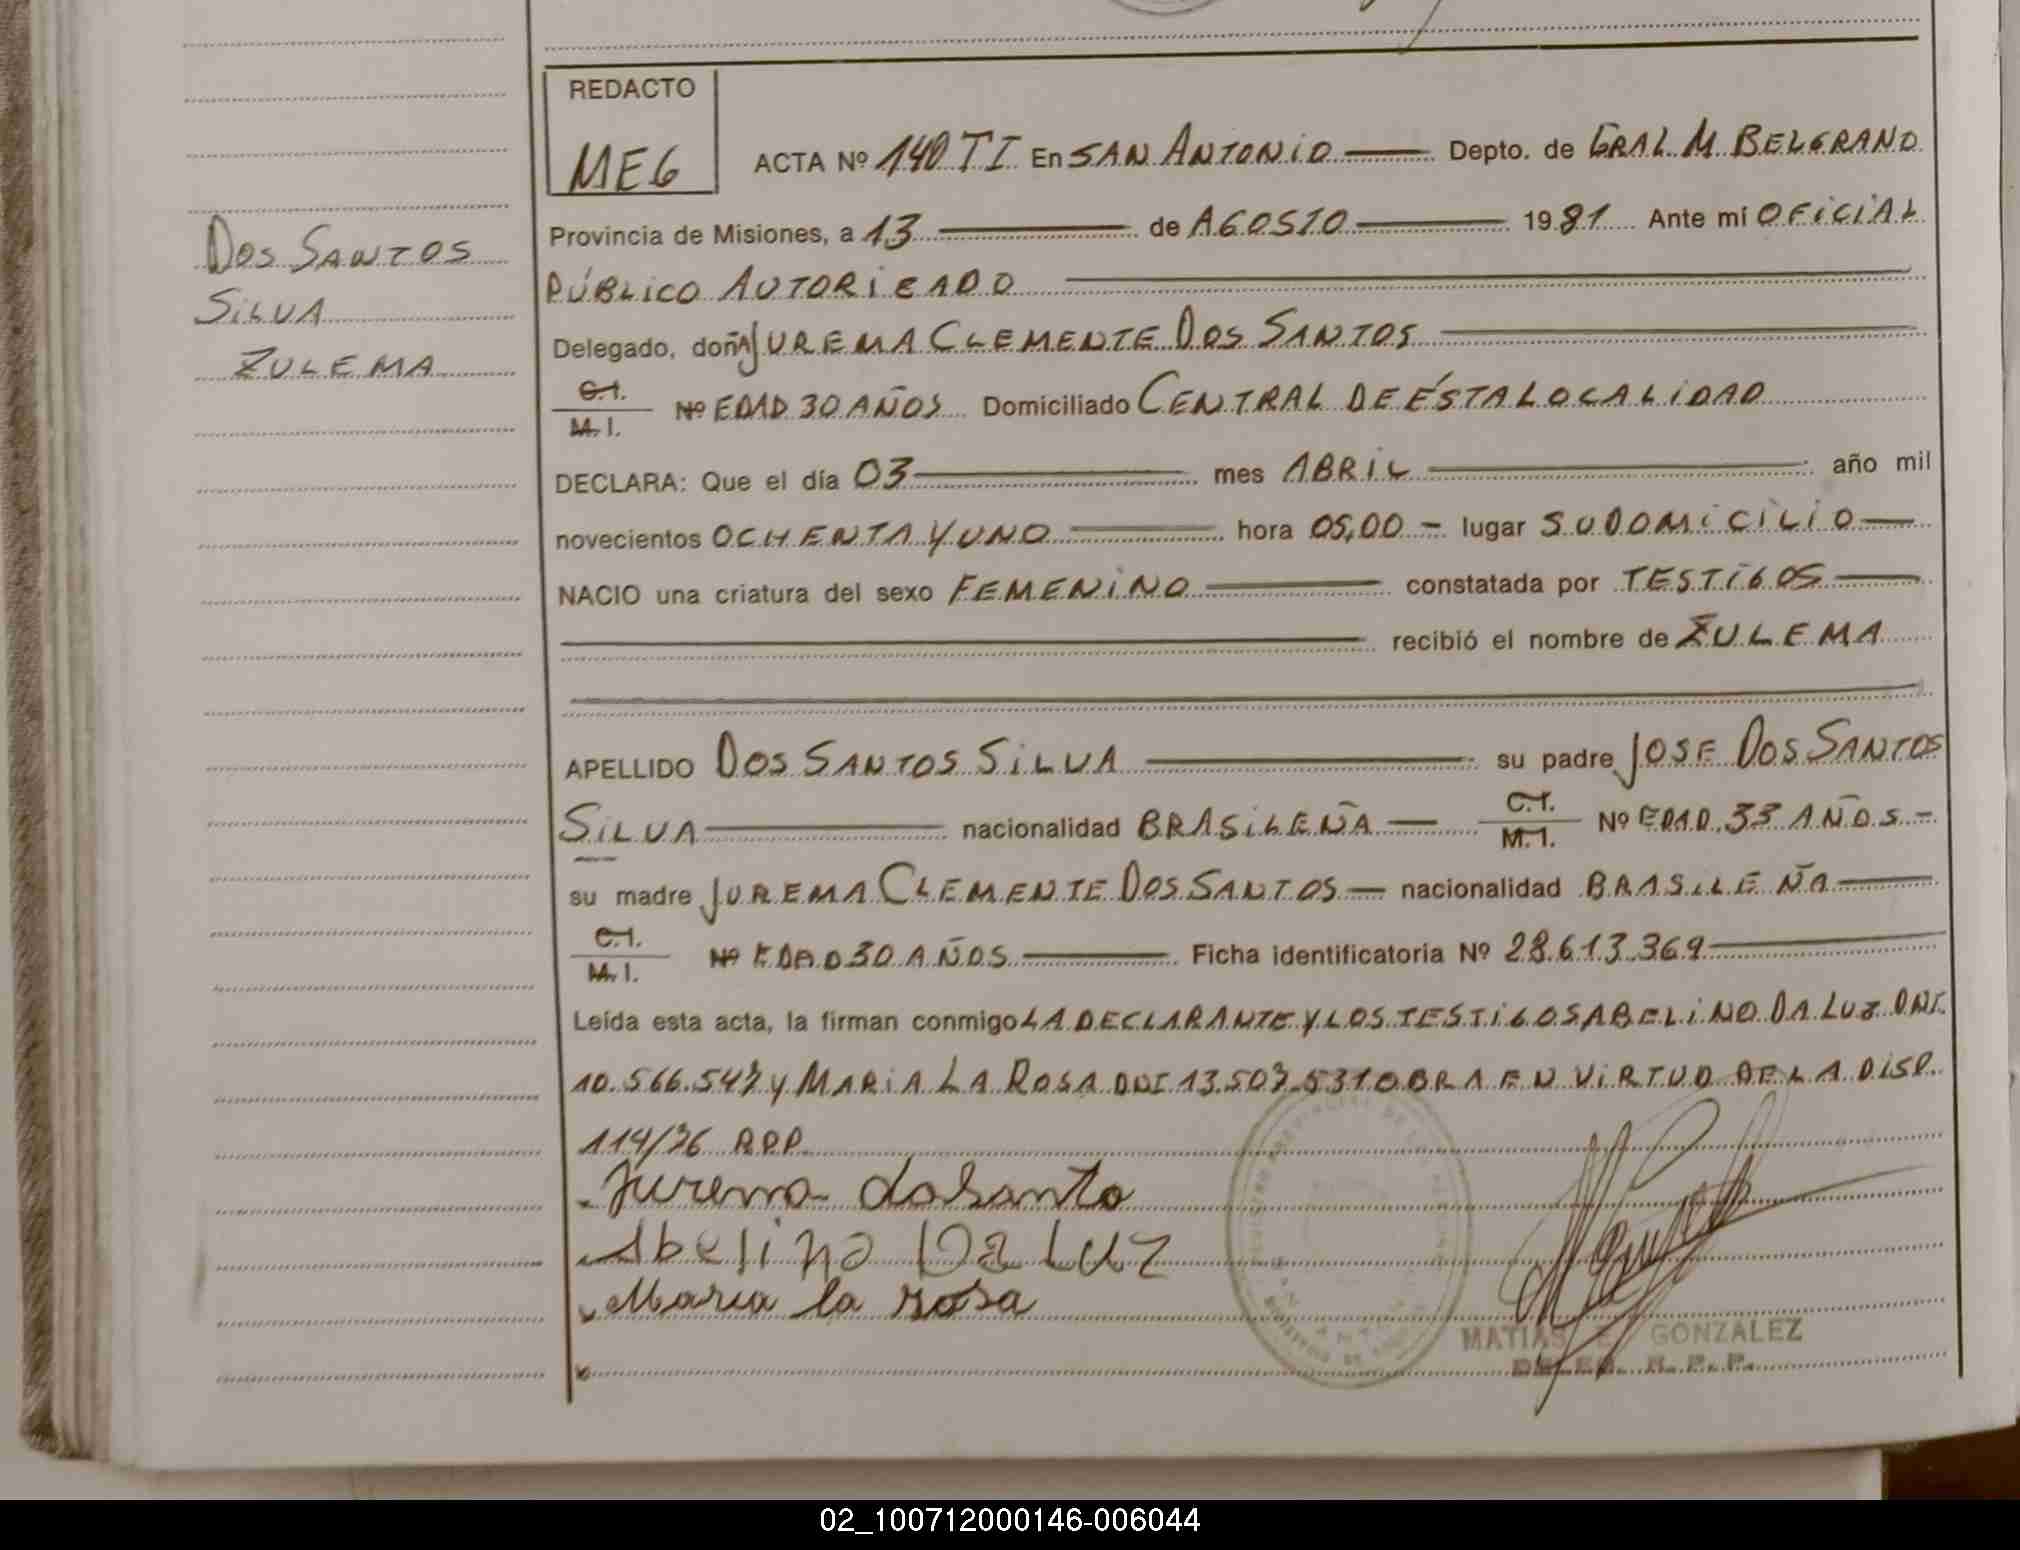 REDACTO
MEG
ACTA Nº 140 TI En SAN ANTONIO Depto. de GRAL M. BELGRANO
Provincia de Misiones, a 13 de AGOSTO 1981 Ante mi OFICIAL
PÚBLICO AUTORIZADO
DOS SANTOS
SILVA
ZULEMA
Delegado, doñA JUREMA CLEMENTE DOS SANTOS
C.I.
M.I. Nº EDAD 30 AÑOS Domiciliado CENTRAL DE ÉSTA LOCALIDAD
DECLARA: Que el día 03 mes ABRIL año mil
novecientos OCHENTA Y UNO hora 05,00 - lugar SU DOMICILIO
NACIO una criatura del sexo FEMENINO constatada por TESTIGOS
recibió el nombre de ZULEMA
APELLIDO DOS SANTOS SILVA su padre JOSE DOS SANTOS
SILVA nacionalidad BRASILEÑA C.I. M.I. Nº EDAD 33 AÑOS -
su madre JUREMA CLEMENTE DOS SANTOS nacionalidad BRASILEÑA
C.I.
M.I. Nº EDAD 30 AÑOS Ficha identificatoria Nº 28.613.369
Leída esta acta, la firman conmigo LA DECLARANTE Y LOS TESTIGOS ABELINO DA LUZ DNI.
10.566.547 y MARIA LA ROSA DNI 13.507.531 OBRA EN VIRTUD DE LA DISP.
114/76 R.P.P.
Jurema dosanto
Abelino Da Luz
Maria la rosa
MATIAS E. GONZALEZ
DELEG. R. P. P.
02_100712000146-006044